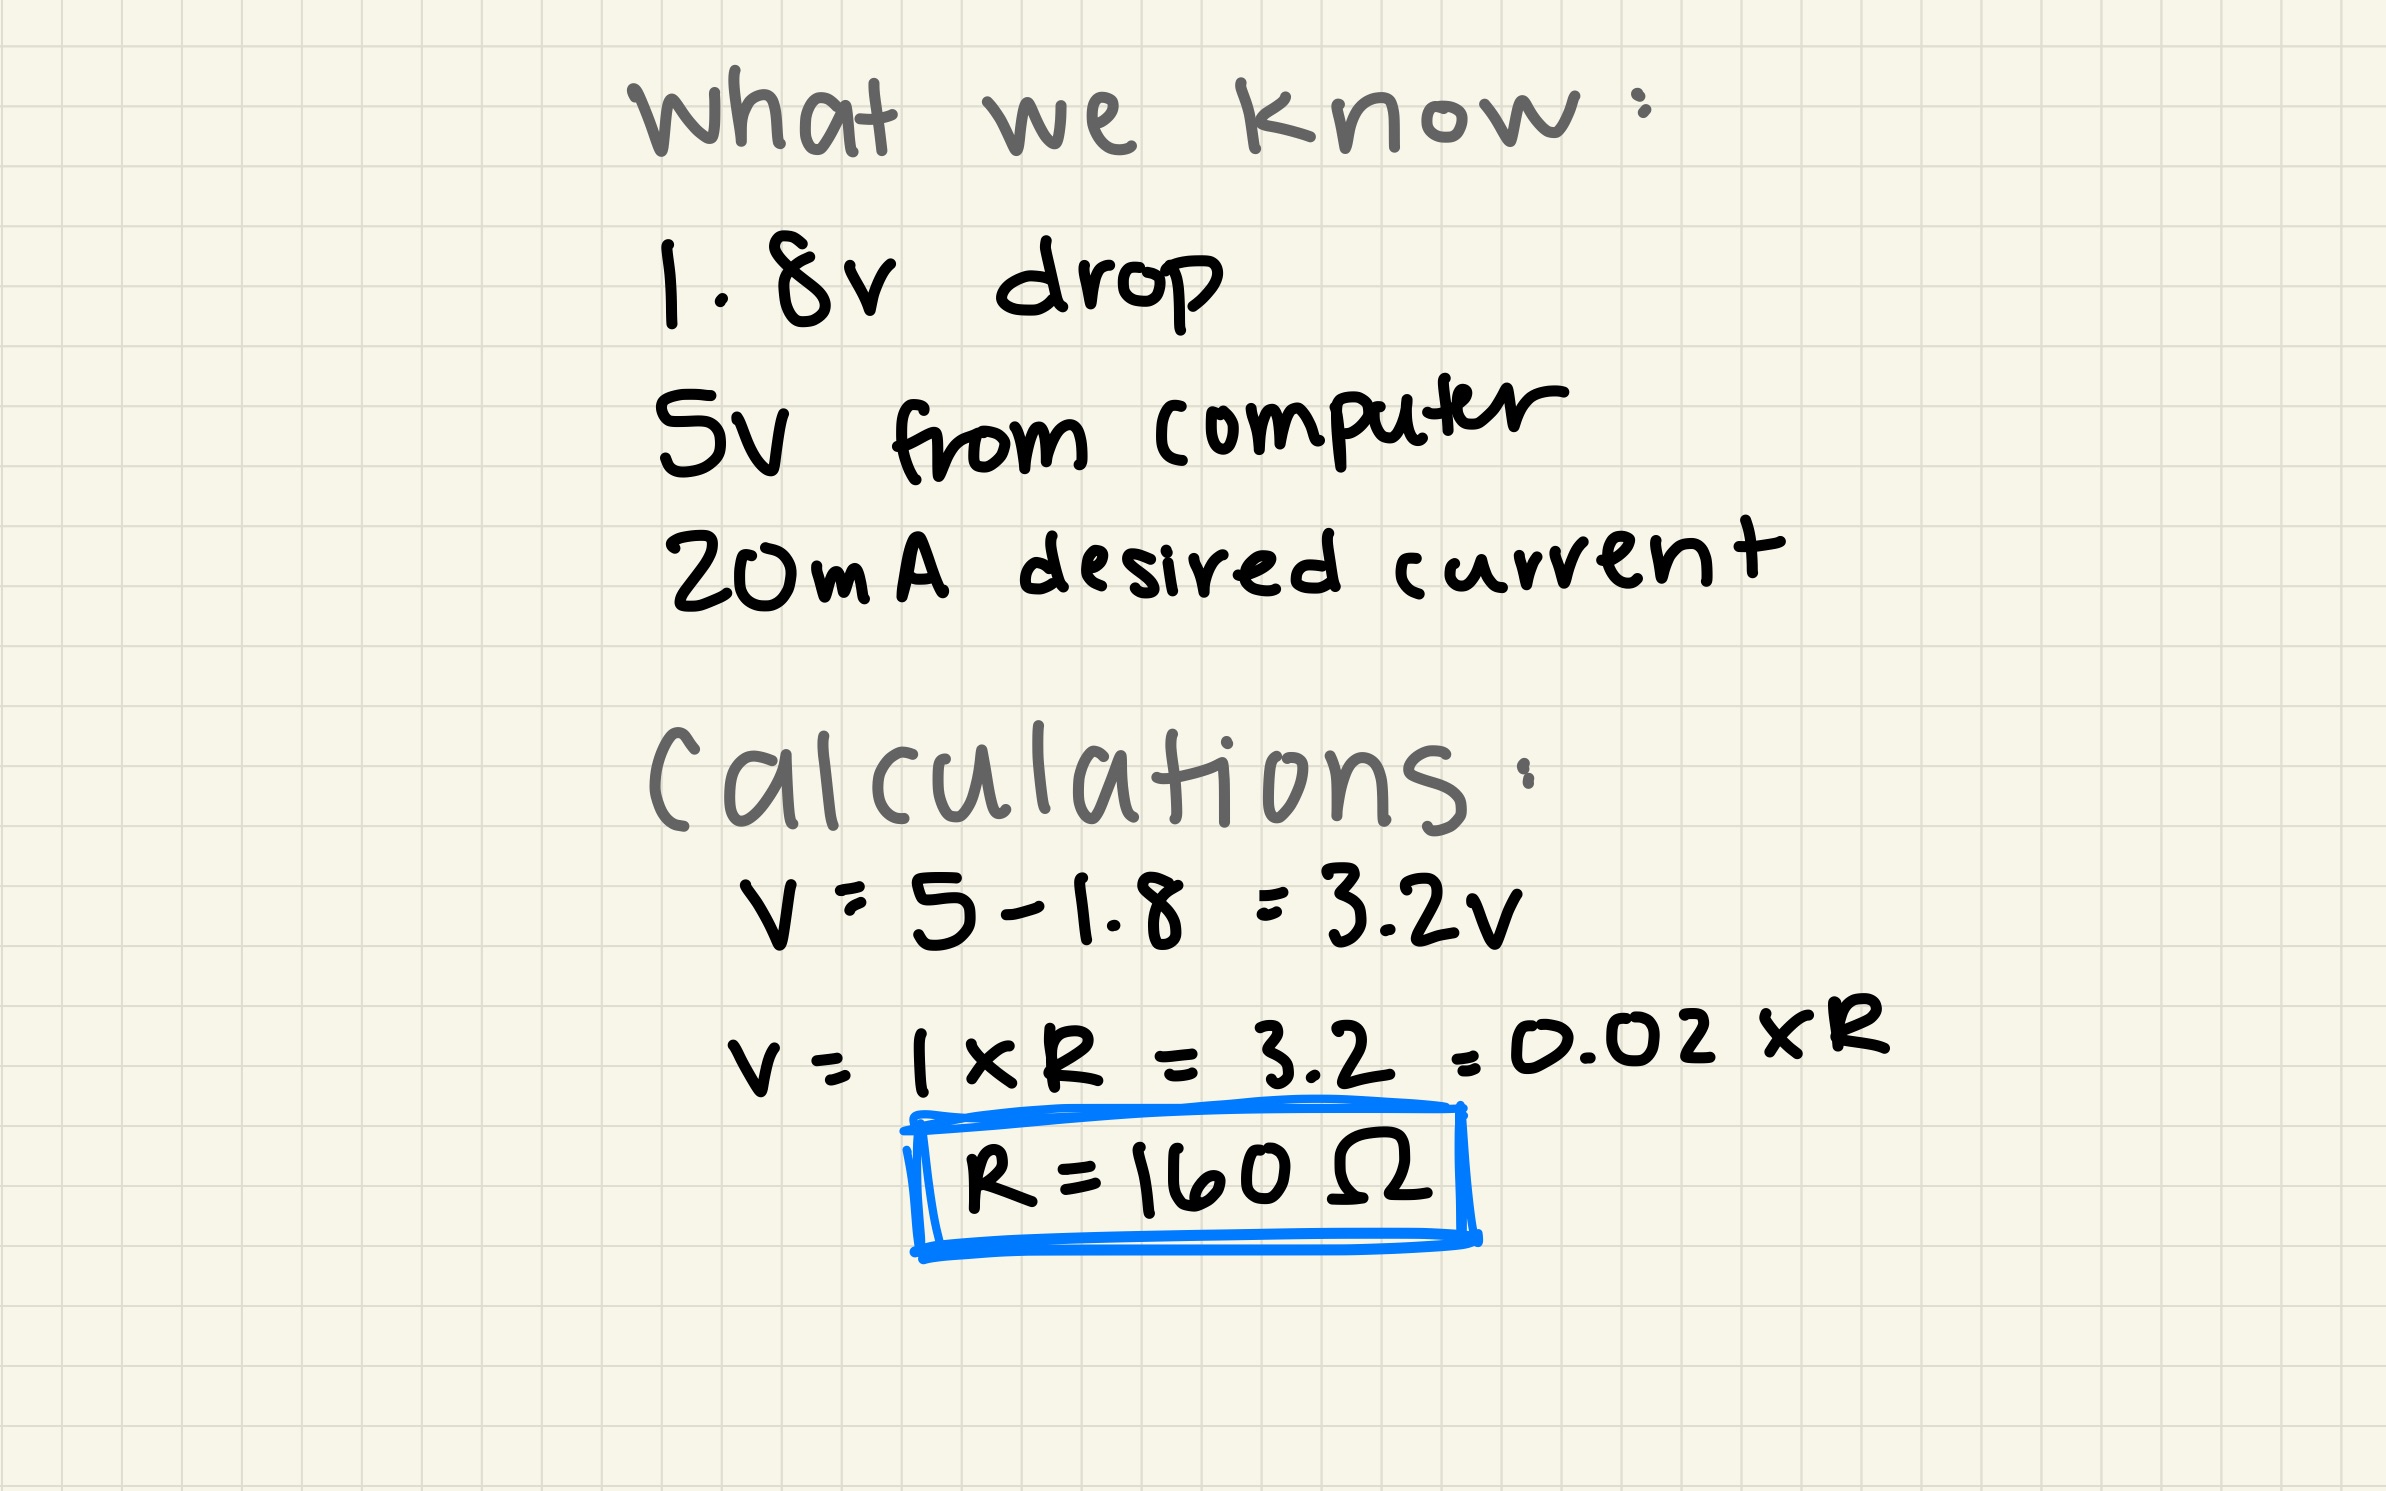 What we know:
1.8v drop
5v from computer
20mA desired current
Calculations:
V = 5 - 1.8 = 3.2v
V = I x R = 3.2 = 0.02 x R
R = 160 Ω